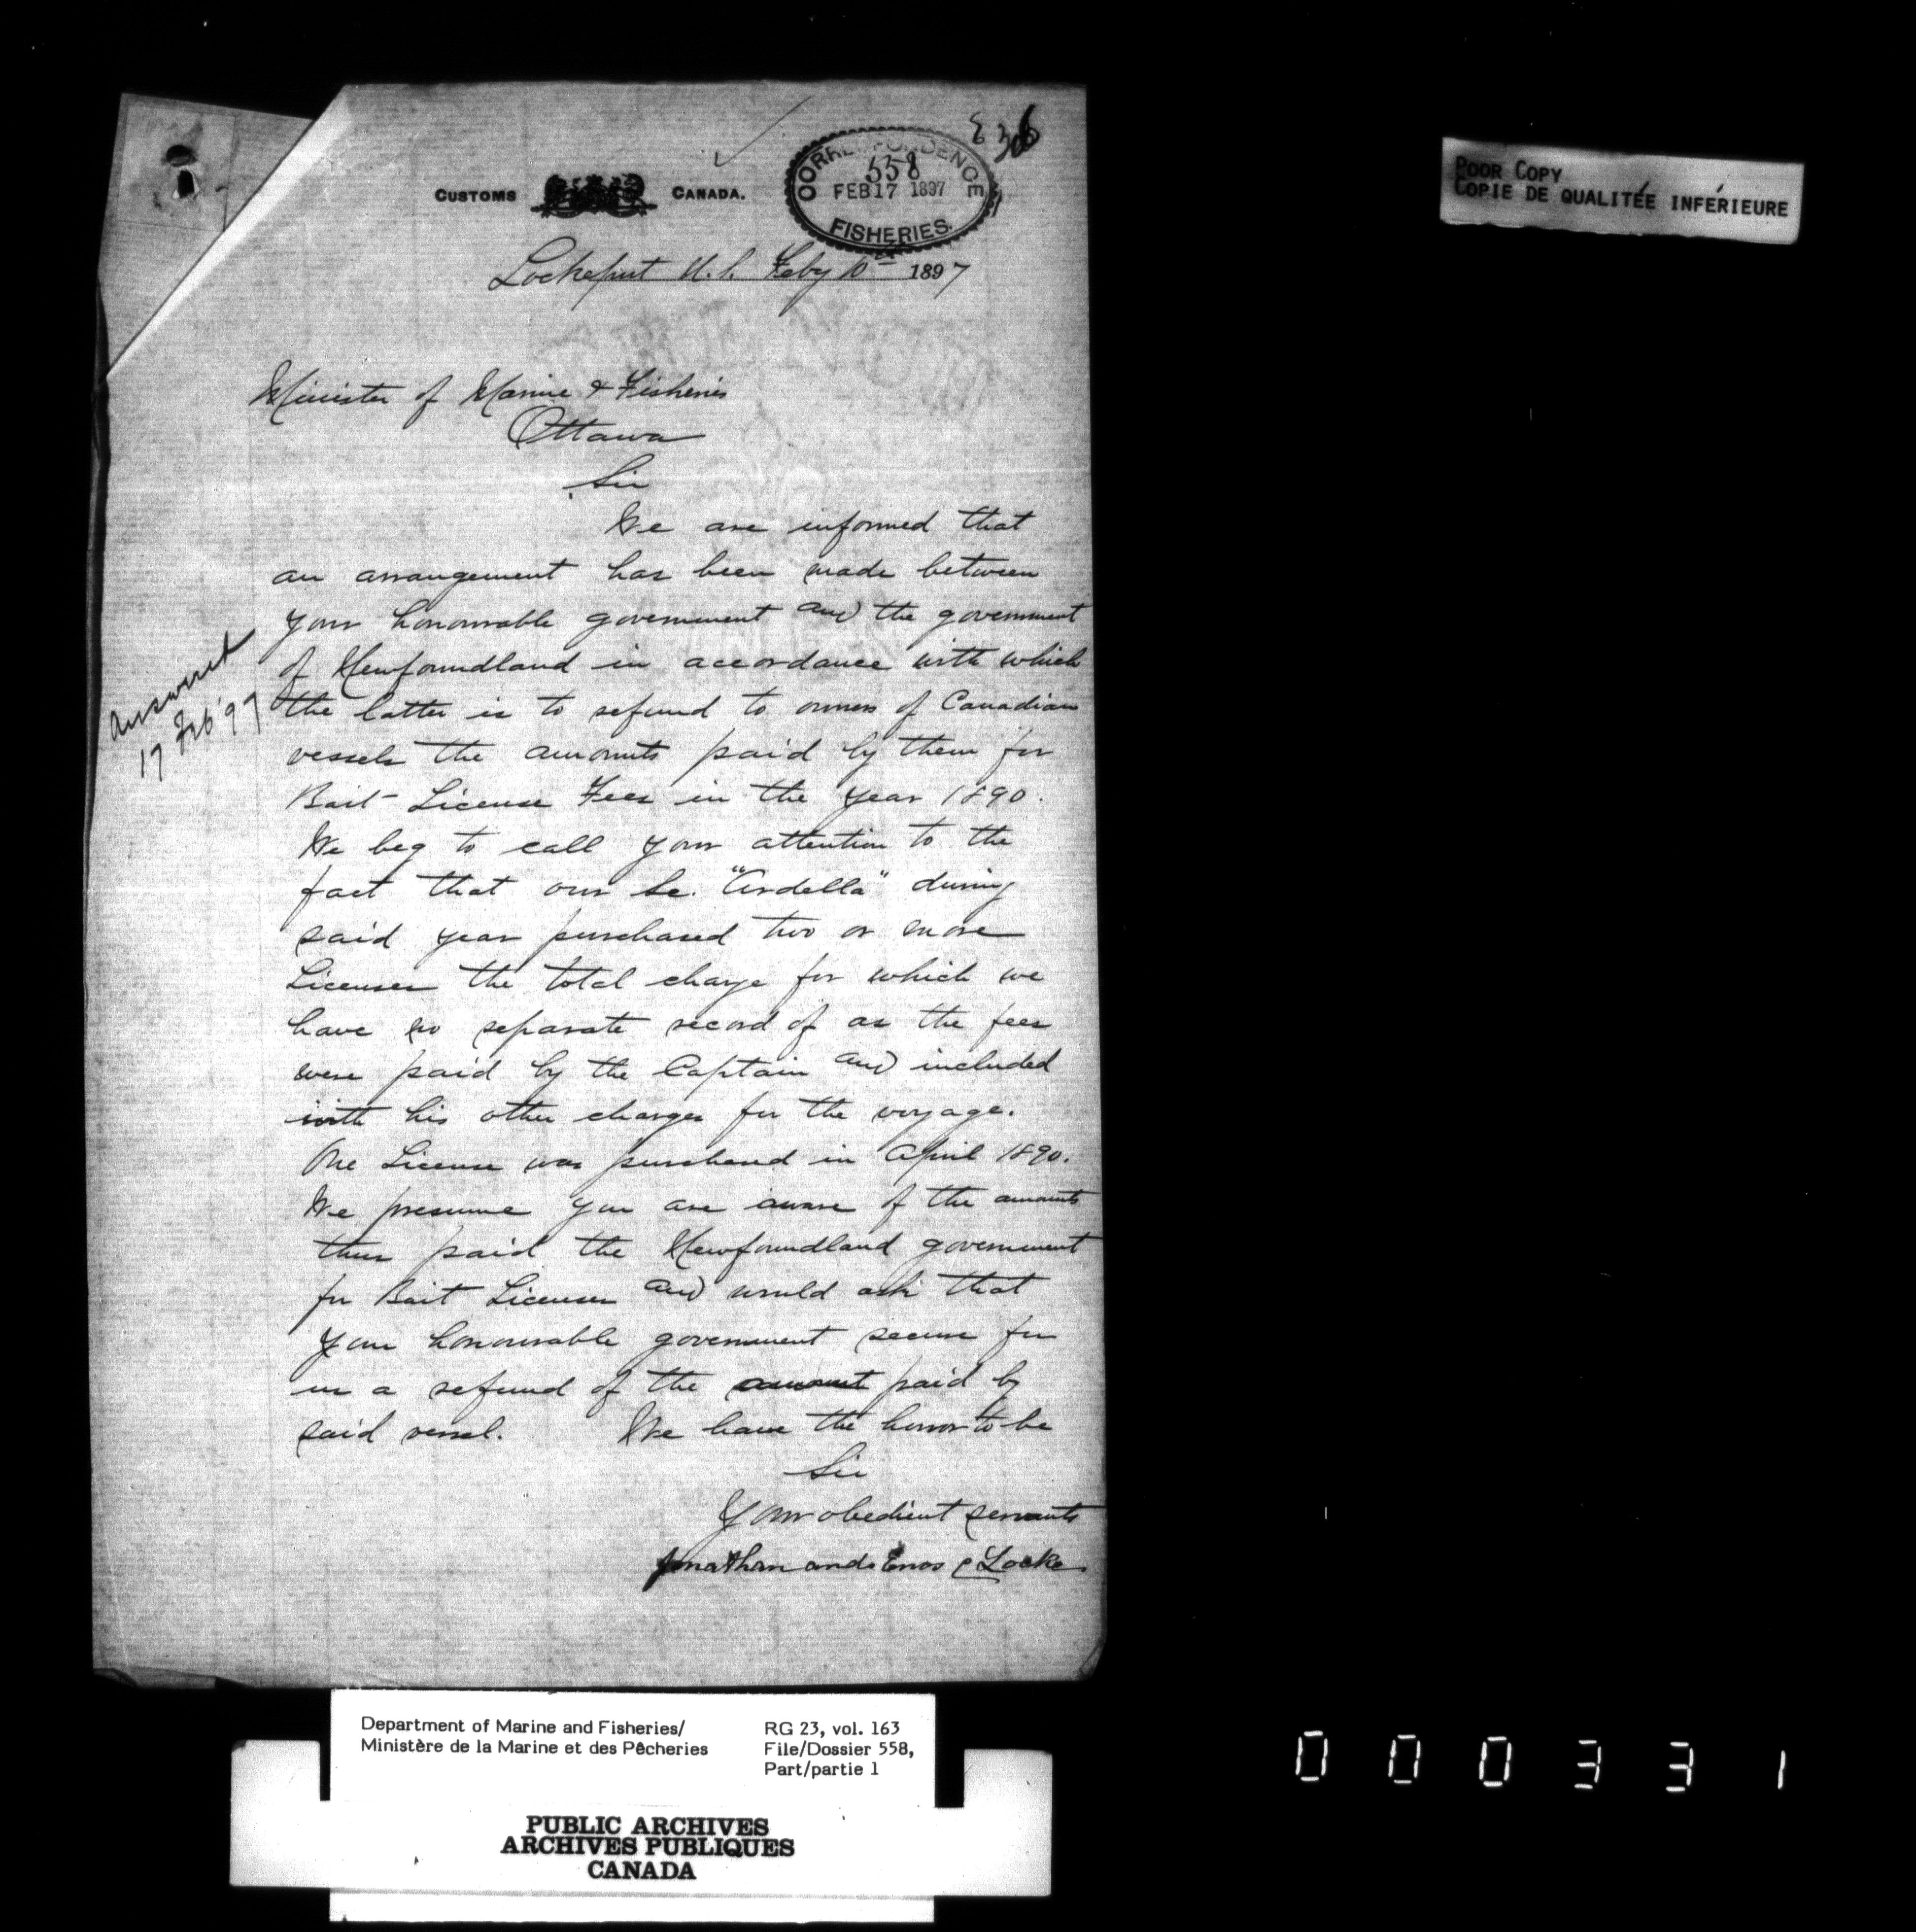 E 306
CORRESPONDENCE
558
FEB 17 1897
FISHERIES.
CUSTOMS CANADA.
Lockeport N.S. Feby 10th 1897
Minister of Marine & Fisheries
Ottawa
Sir
We are informed that
an arrangement has been made between
your honourable government and the government
of Newfoundland in accordance with which
the latter is to refund to owners of Canadian
vessels the amounts paid by them for
Bait License Fees in the year 1890.
We beg to call your attention to the
fact that our Sc. "Ardella" during
said year purchased two or more
Licenses the total charge for which we
have no separate record of as the fees
were paid by the Captain and included
with his other charges for the voyage.
One License was purchased in April 1890.
We presume you are aware of the amounts
thus paid the Newfoundland government
for Bait Licenses and would ask that
your honourable government secure for
us a refund of the amount paid by
said vessel. We have the honor to be
Sir
Your obedient servants
Jonathan and Enos C Locke
Answered
17 Feb '97
POOR COPY
COPIE DE QUALITÉE INFÉRIEURE
Department of Marine and Fisheries/
Ministère de la Marine et des Pêcheries
RG 23, vol. 163
File/Dossier 558,
Part/partie 1
PUBLIC ARCHIVES
ARCHIVES PUBLIQUES
CANADA
000331